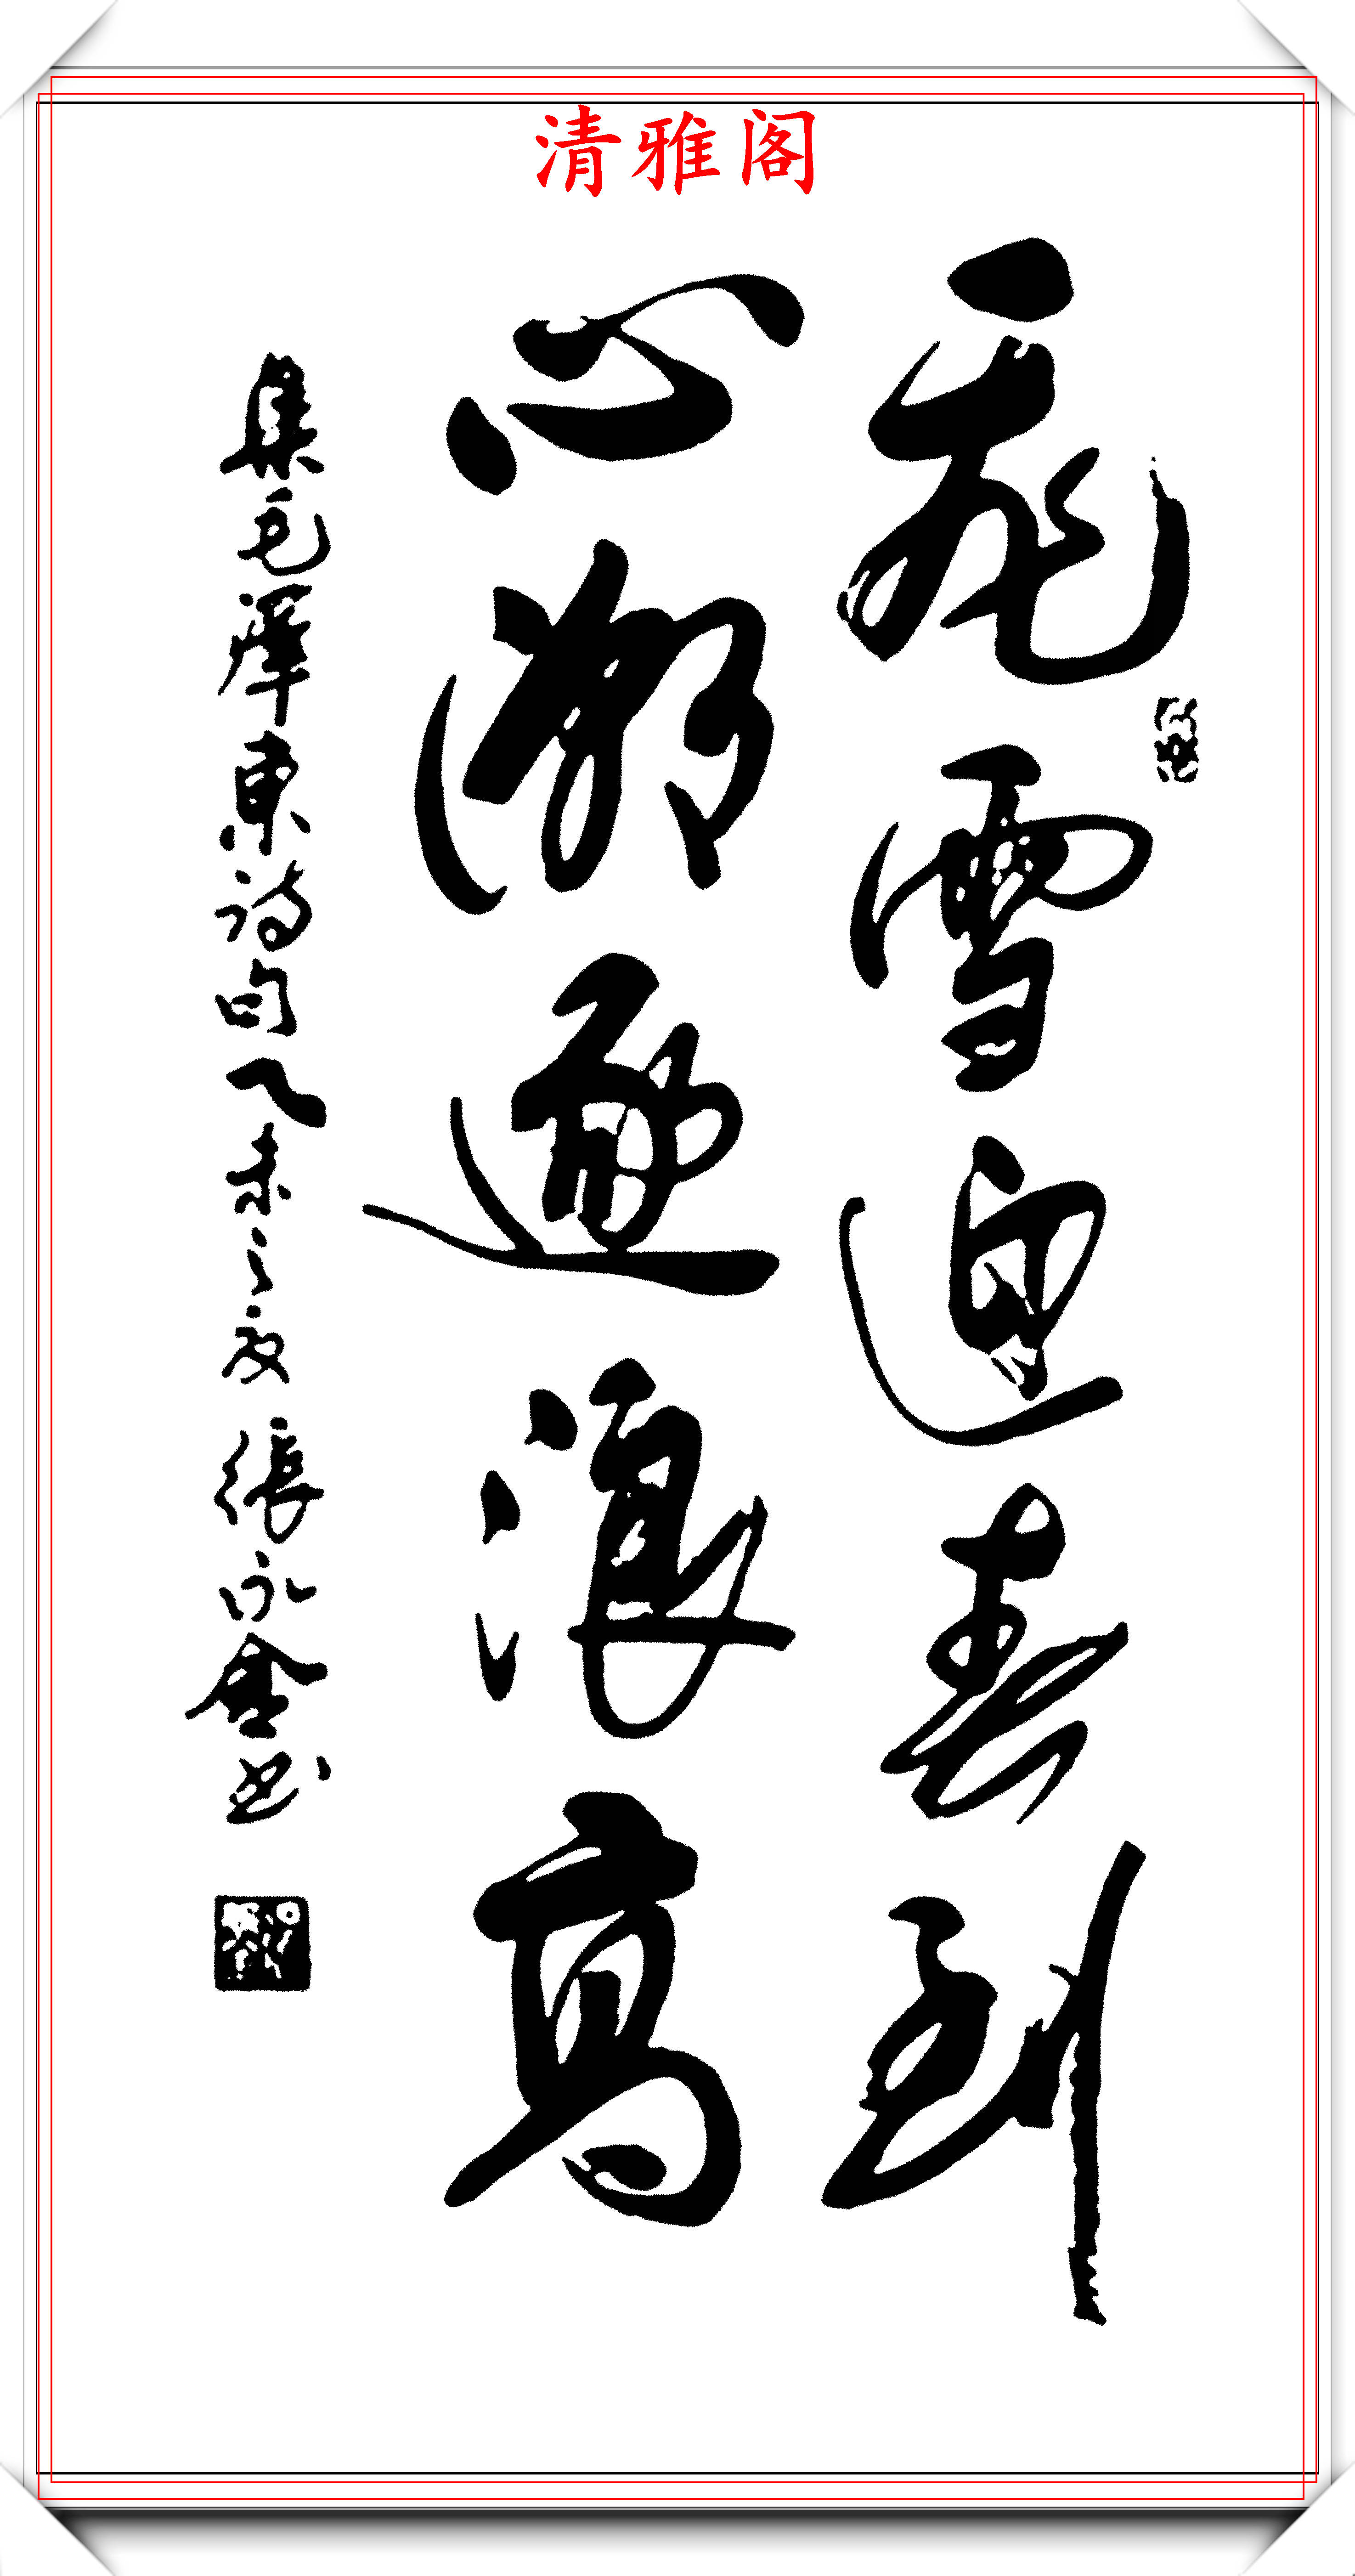 清雅阁
飛雪迎春到
心潮逐浪高
集毛澤東詩句乙未之夏 張永金书